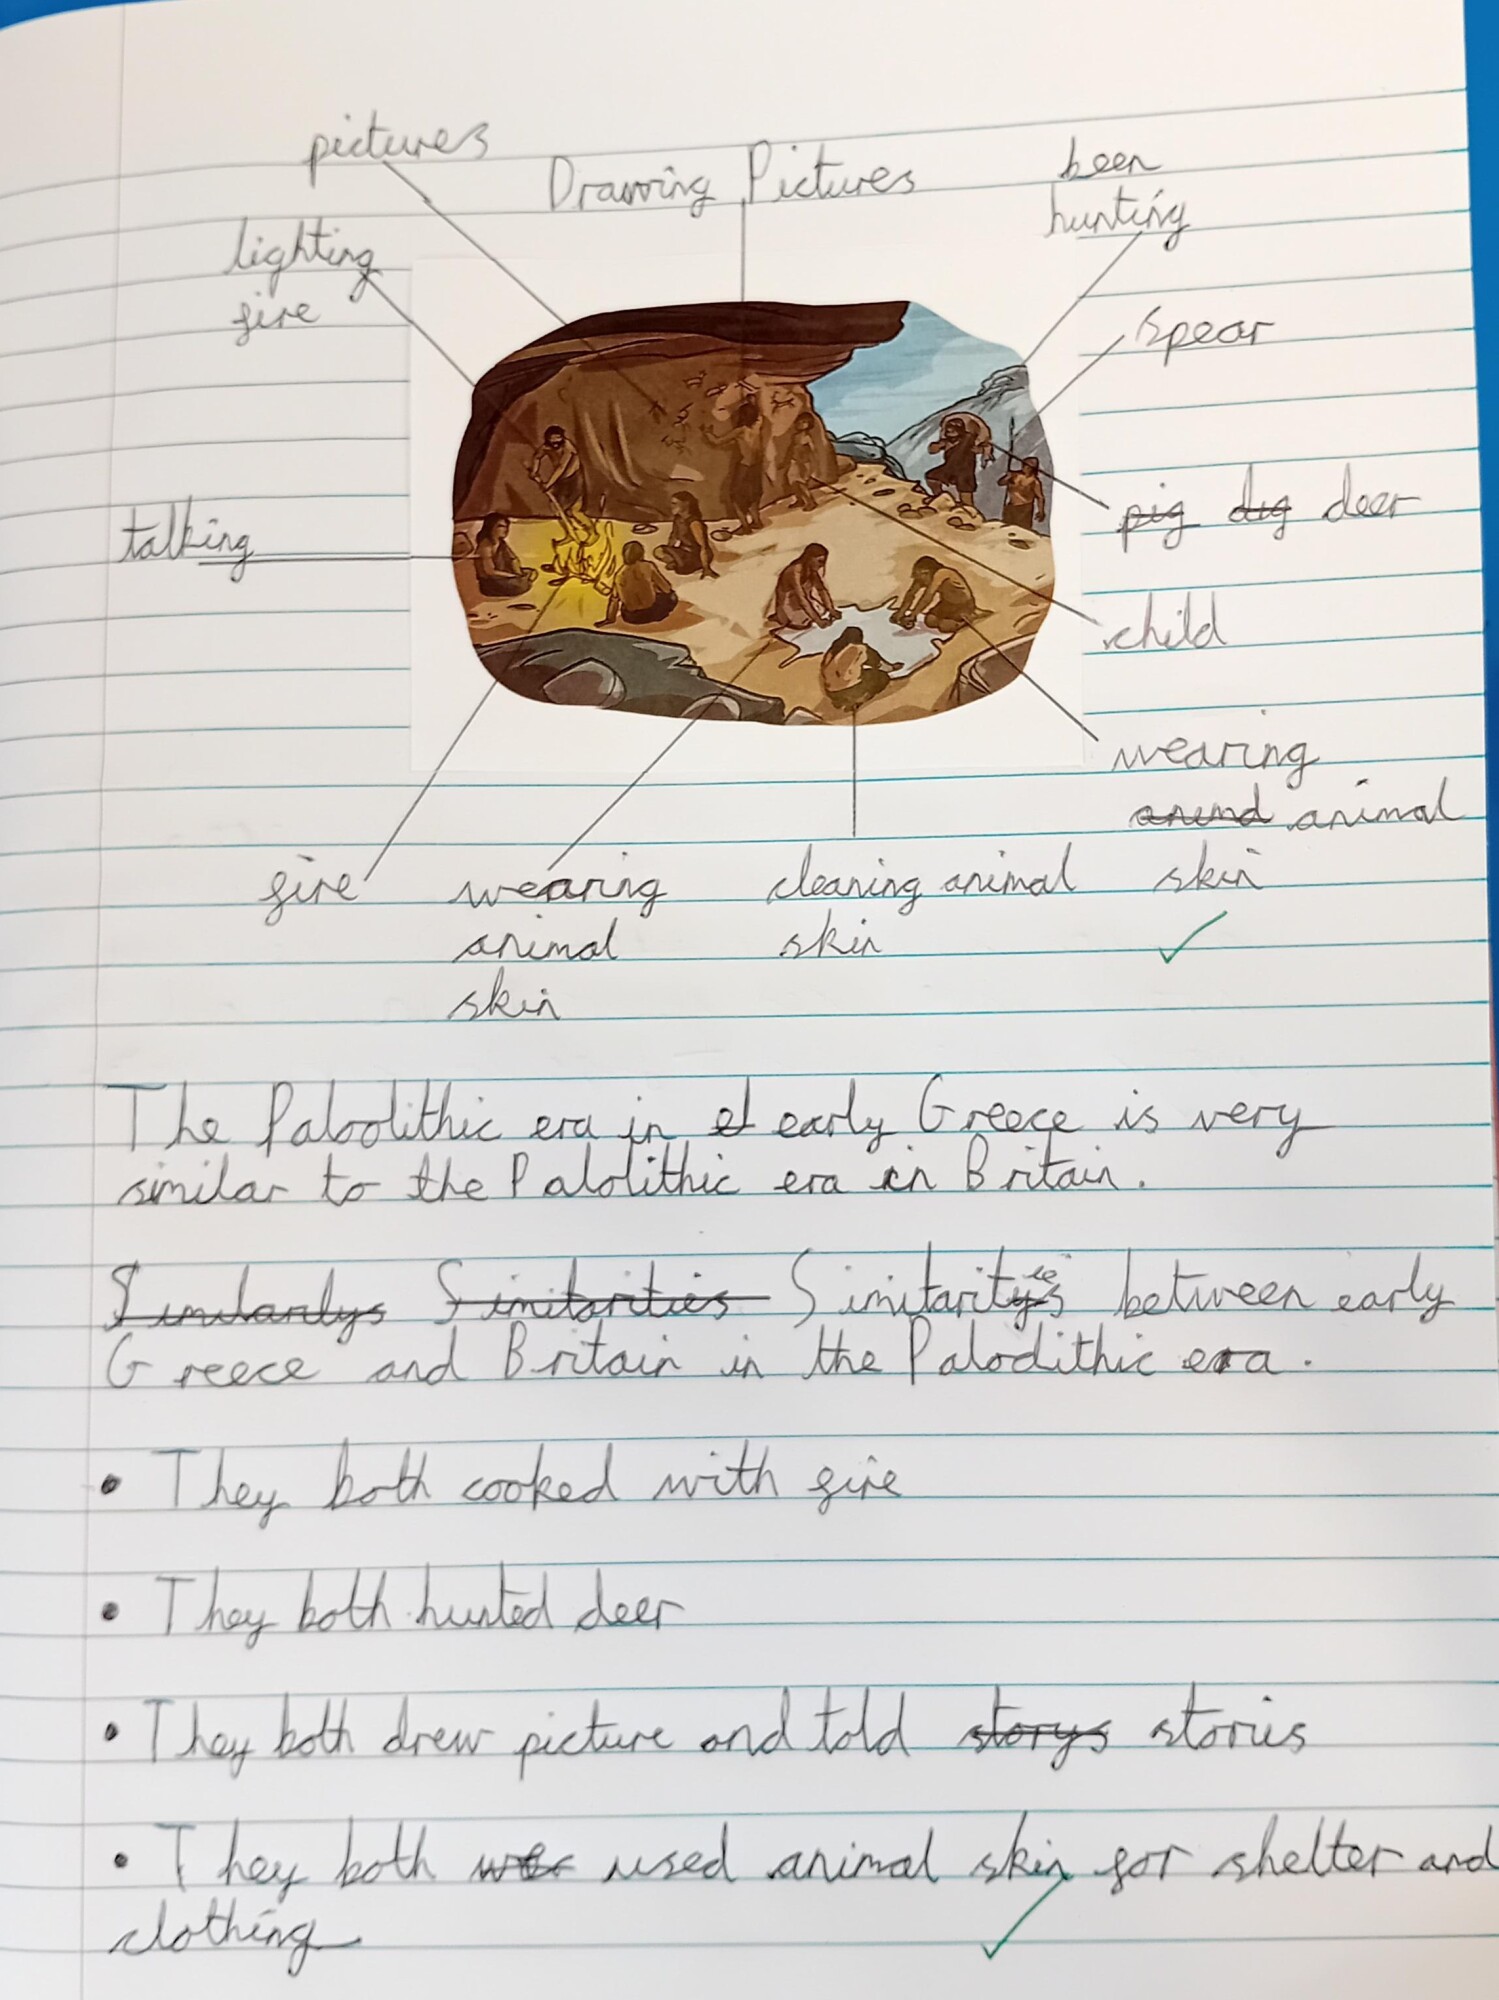 pictures
Drawing Pictures
been
hunting
lighting
fire
spear
talking
pig dig deer
child
wearing
animd animal
skin
fire
wearing
animal
skin
cleaning animal
skin
The Paloolithic era in el early Greece is very
similar to the Palolithic era in Britain.
Similarlys Similarities Similarities between early
Greece and Britain in the Palodithic era.
• They both cooked with fire
• They both hunted deer
• They both drew picture and told storys stories
• They both used animal skin for shelter and
clothing